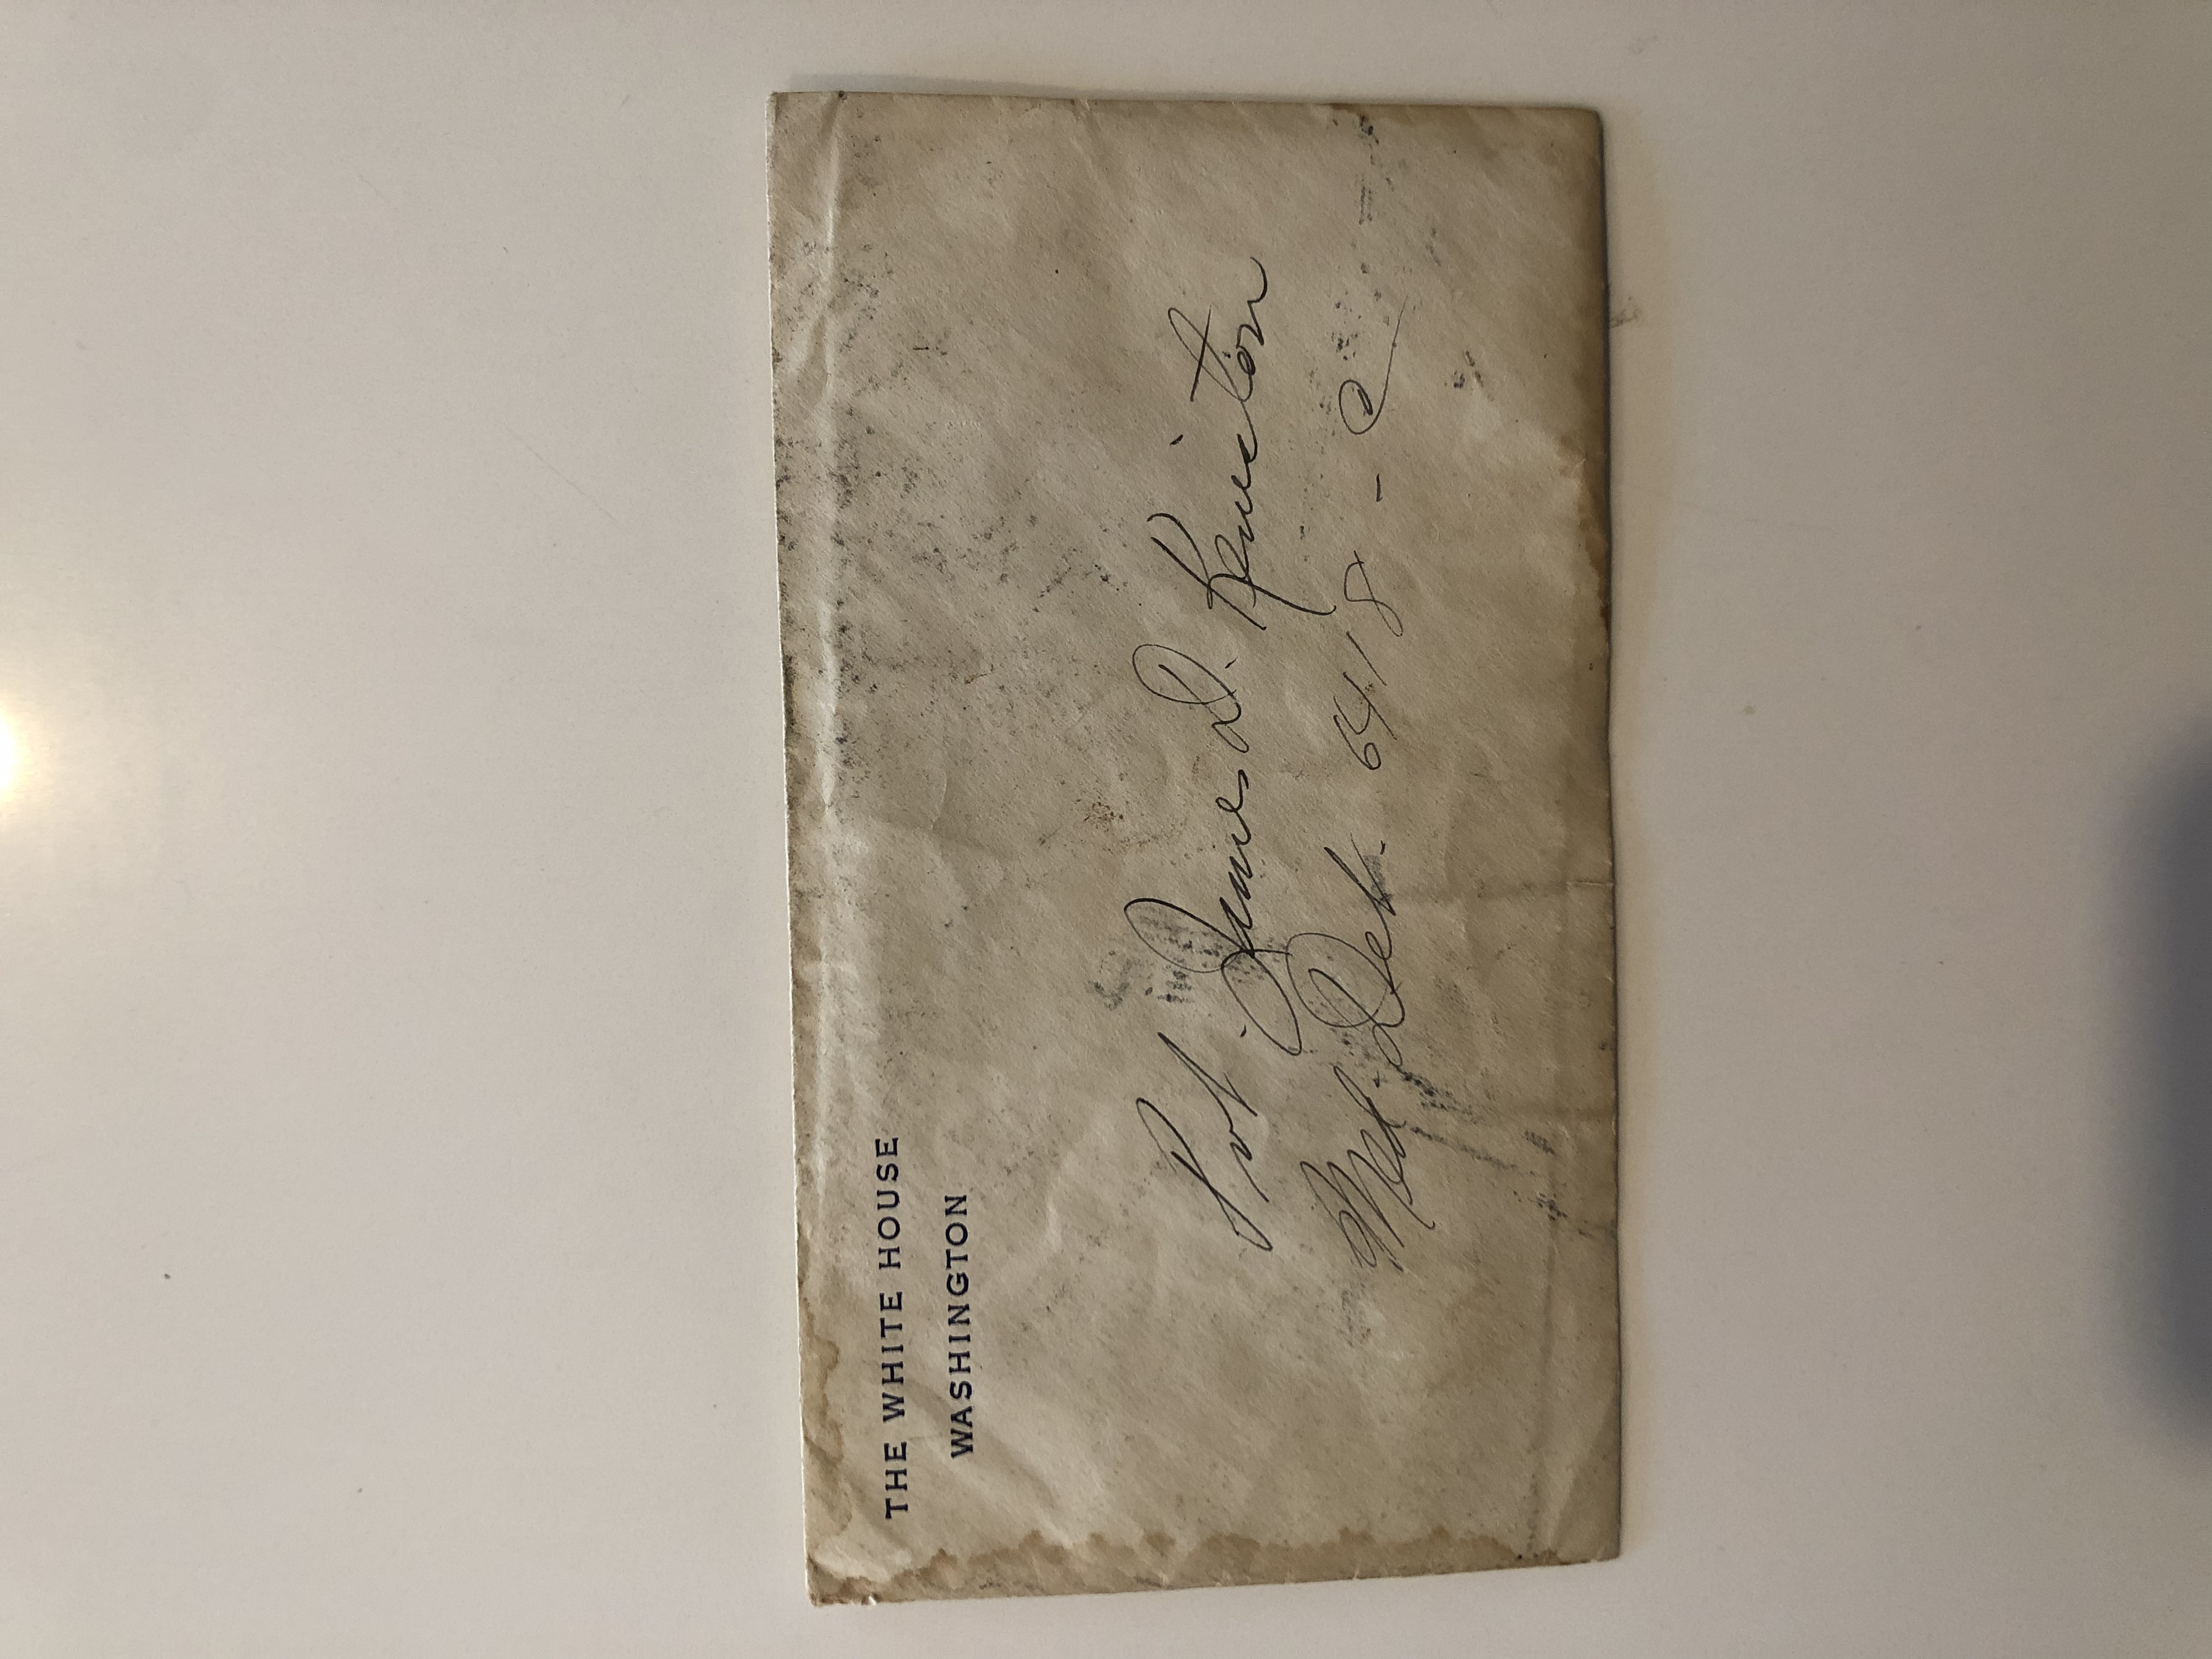 THE WHITE HOUSE
WASHINGTON
Pvt. James D. Keniston
Med. Det. 6418 - C